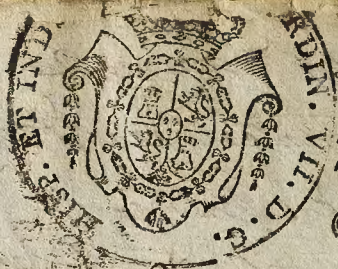 RDIN. VII. D. G.
HISP. ET IND.